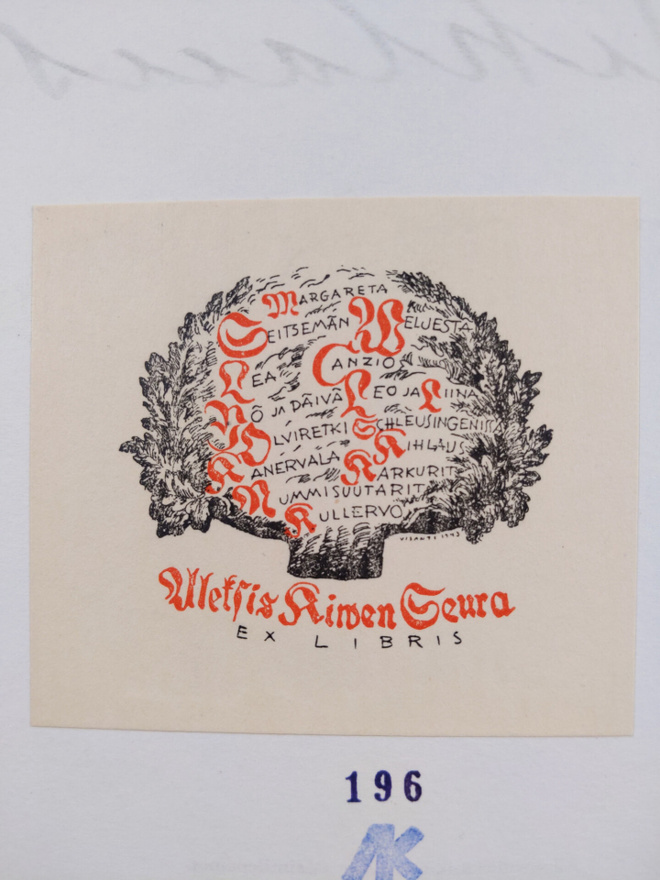 MARGARETA
SEITSEMÄN WELJESTÄ
LEA CANZIO
YÖ JA PÄIVÄ LEO JA LIINA
OLVIRETKI SCHLEUSINGENISSA
KIHLAUS
KANERVALA KARKURIT
NUMMISUUTARIT
KULLERVO
VISANTI 1943
Aleksis Kiwen Seura
EX LIBRIS
196
AK